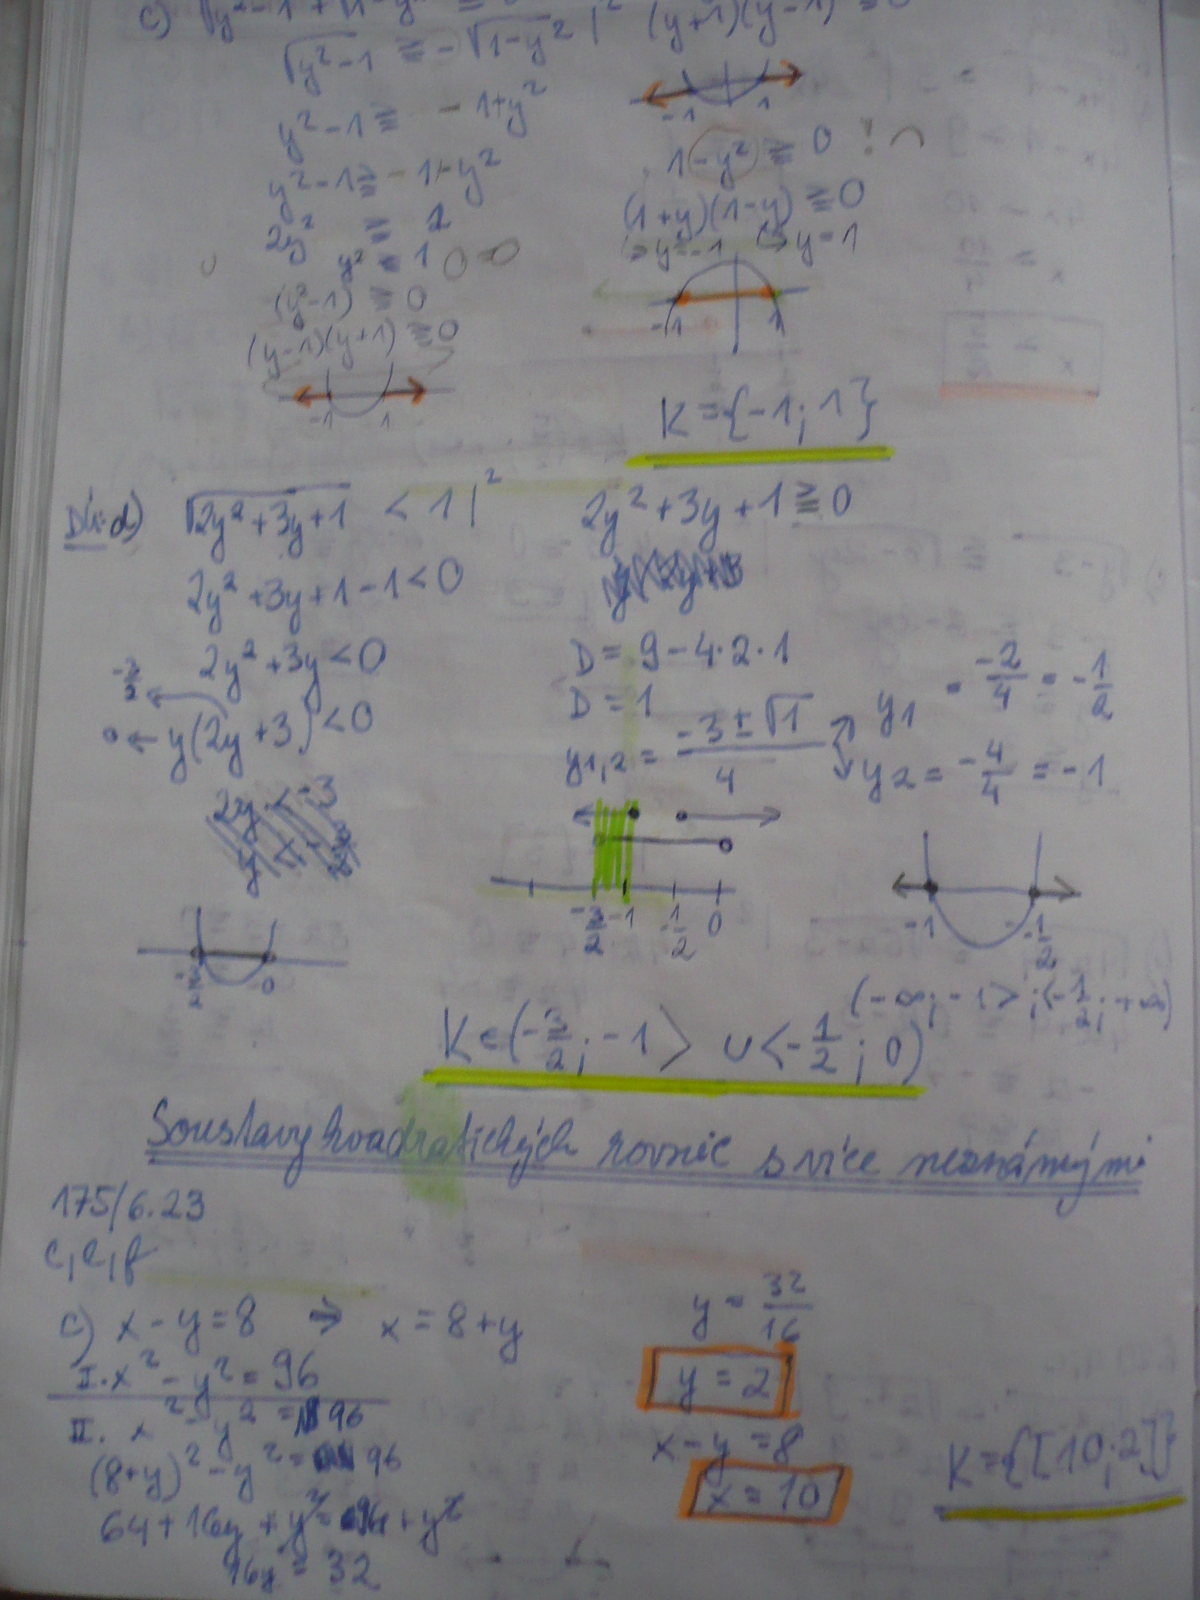 c) √y²-1 + √1-y² ≧ 0
√y²-1 ≧ -√1-y² |² (y+1)(y-1) ≧ 0
-1 1
y²-1 ≧ -1+y²
1-y² ≧ 0 !
y²-1 ≧ -1+y²
(1+y)(1-y) ≧ 0
2y² ≧ 2
y=-1 y=1
y² = 1 0=0
(y²-1) ≧ 0
-1 1
(y-1)(y+1) ≧ 0
-1 1
K={-1; 1}
DÚ: d) √2y²+3y+1 < 1 |²
2y²+3y+1 ≧ 0
2y²+3y+1-1<0
2y²+3y<0
D= 9-4·2·1
-3/2
D=1
y1 = -2/4 = -1/2
0 ← y(2y+3)<0
y1,2 = (-3±√1)/4
y2 = -4/4 = -1
2y < -3
-3/2 -1 -1/2 0
-1 -1/2
-3/2 0
(-∞; -1> ; <-1/2; +∞)
K∈(-3/2; -1> ∪ <-1/2; 0)
Soustavy kvadratických rovnic s více neznámými
175/6.23
c, e, f
c) x-y=8 ⇒ x=8+y
I. x²-y²=96
II. x²-y²=96
(8+y)²-y²=96
64+16y+y²=96+y²
16y=32
y = 32/16
y = 2
x-y=8
x=10
K={[10;2]}